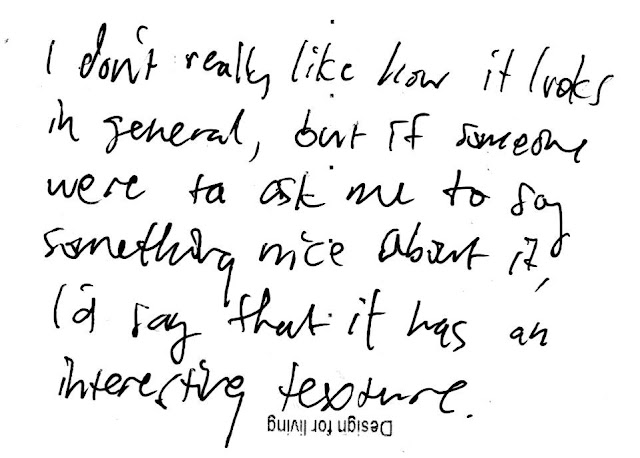 I don't really like how it looks
in general, but if someone
were to ask me to say
something nice about it,
I'd say that it has an
interesting texture.
Design for living